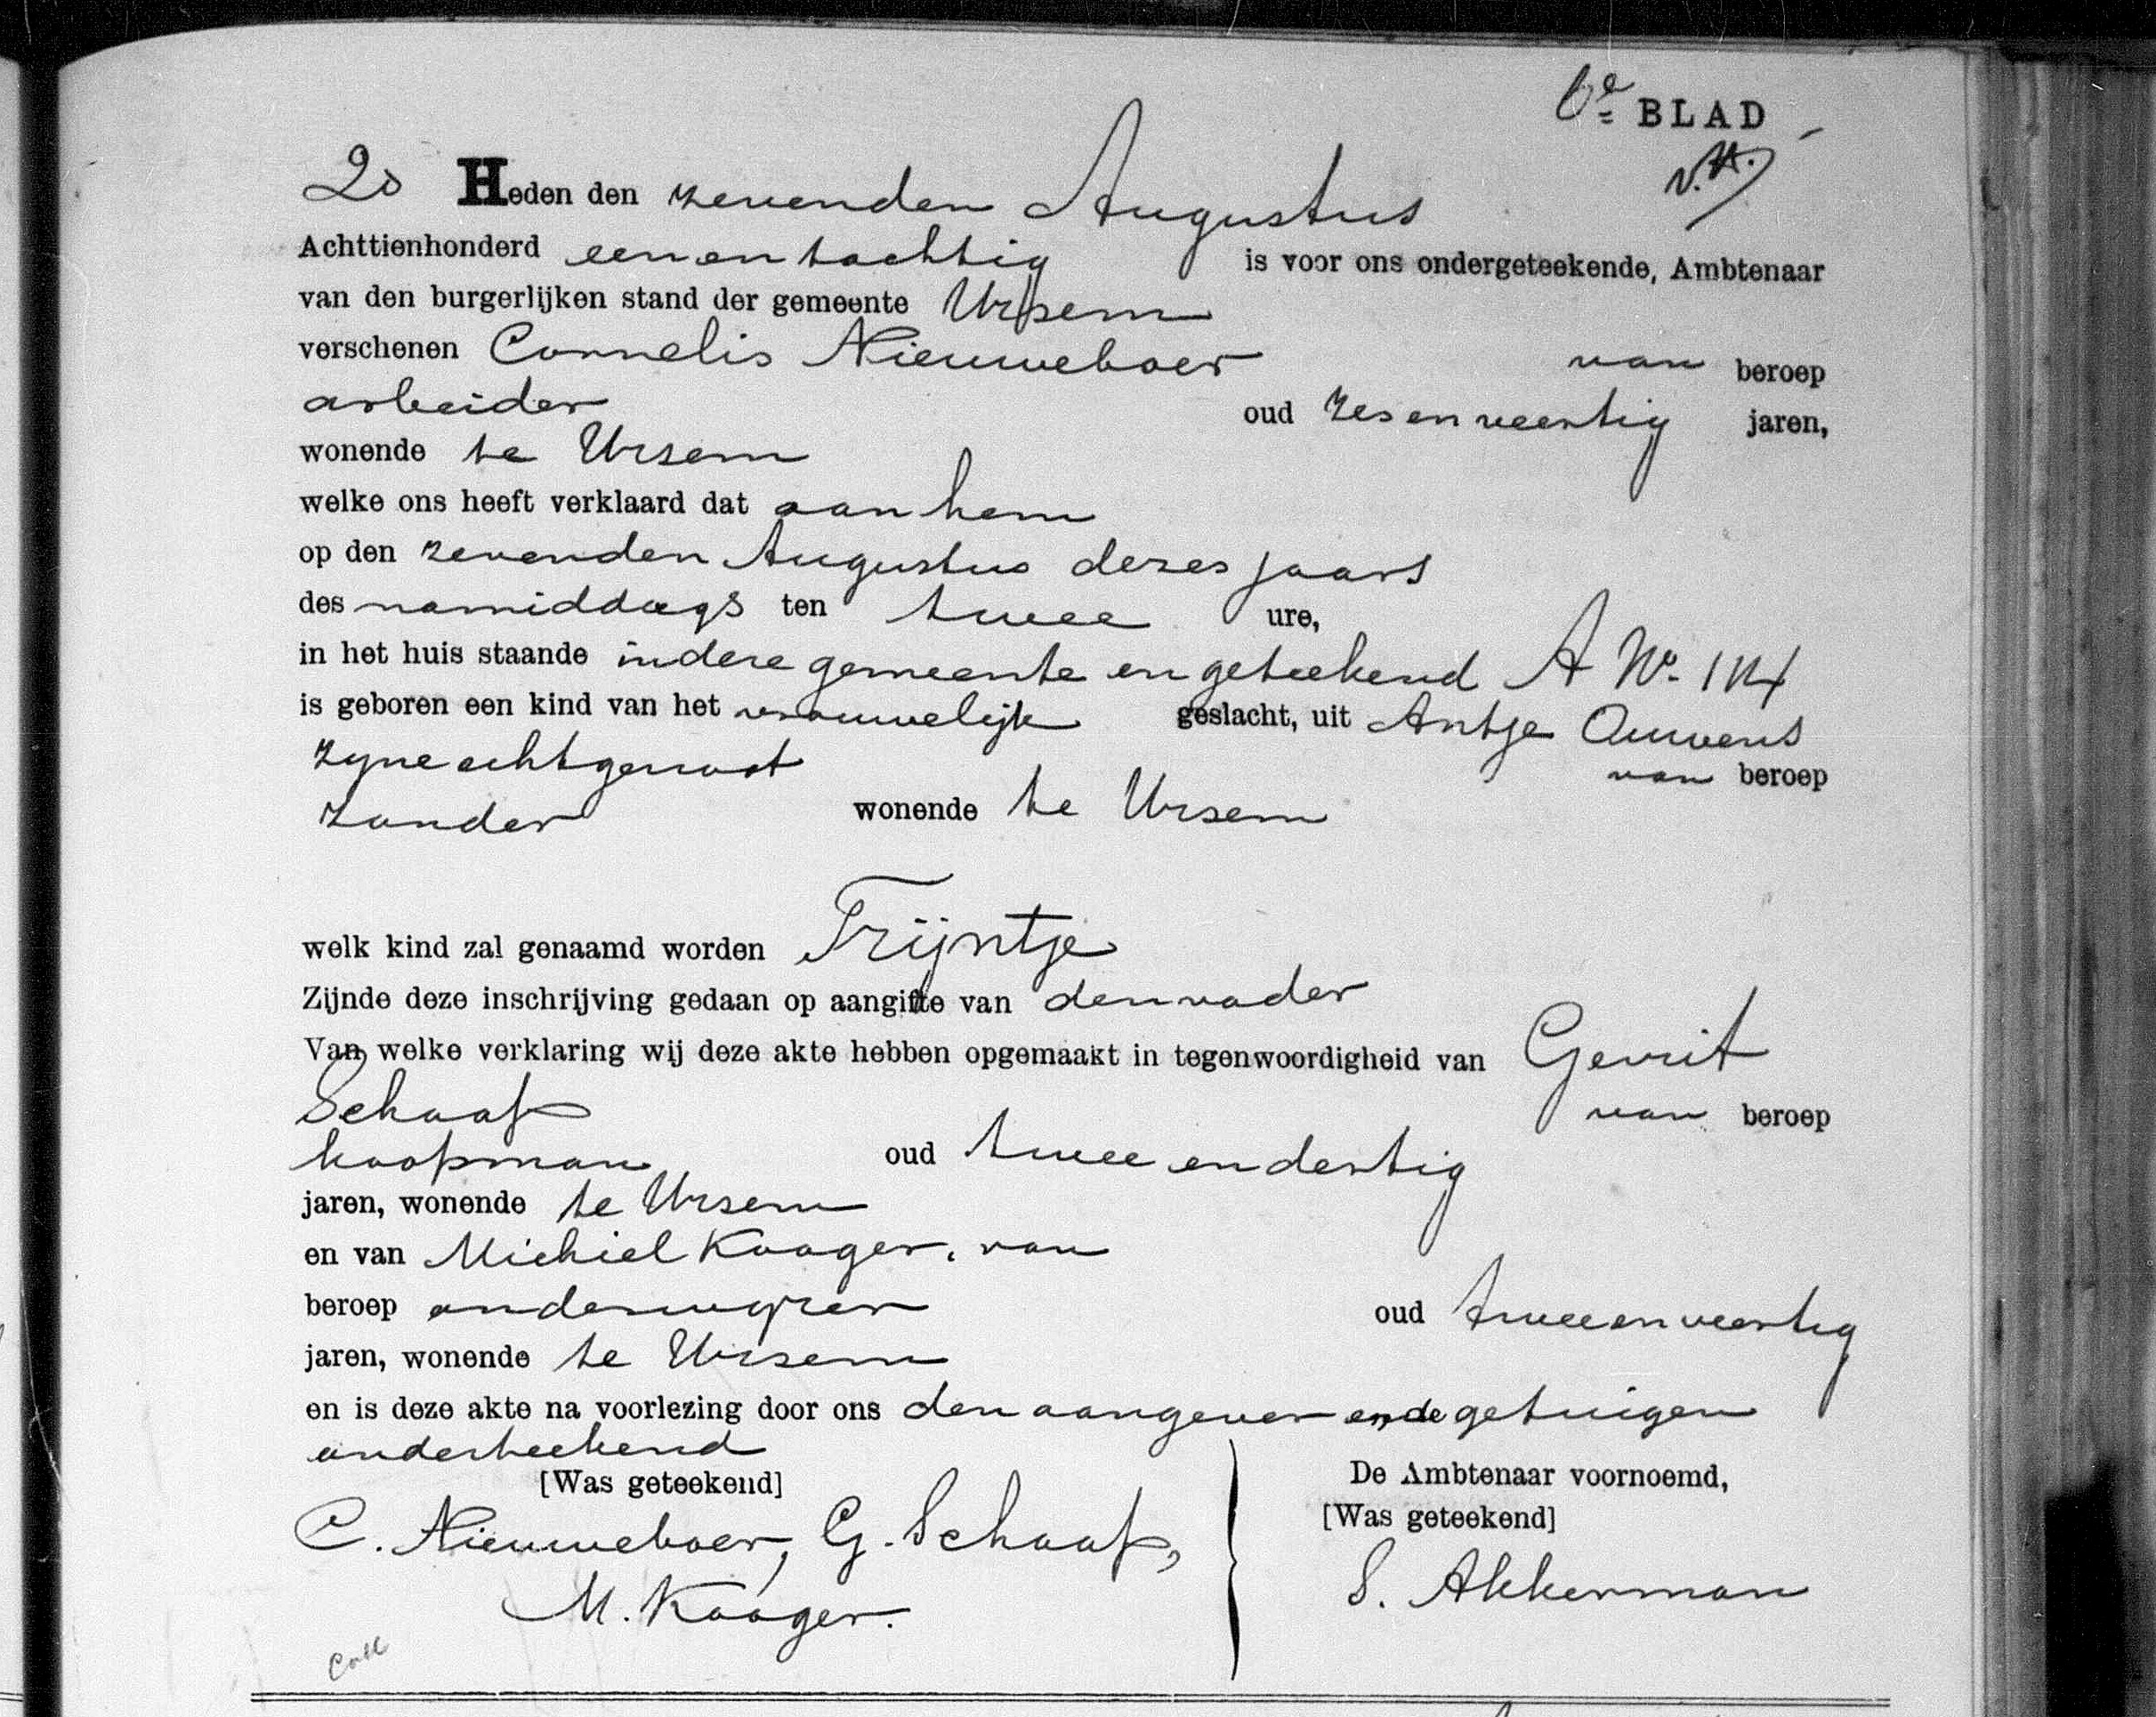 6e BLAD
v.A.
20 Heden den zevenden Augustus
Achttienhonderd een en tachtig is voor ons ondergeteekende, Ambtenaar
van den burgerlijken stand der gemeente Ursem
verschenen Cornelis Nieuweboer van beroep
arbeider oud zes en veertig jaren,
wonende te Ursem
welke ons heeft verklaard dat aan hem
op den zevenden Augustus dezes jaars
des namiddags ten twee ure,
in het huis staande in deze gemeente en geteekend A No.
is geboren een kind van het vrouwelijk geslacht, uit Antje Ouwens
zyne echtgenoot van beroep
zonder wonende te Ursem
welk kind zal genaamd worden Trijntje
Zijnde deze inschrijving gedaan op aangifte van den vader
Van welke verklaring wij deze akte hebben opgemaakt in tegenwoordigheid van Gerrit
Schaap van beroep
koopman oud twee en dertig
jaren, wonende te Ursem
en van Michiel Kaager, van
beroep onderwyzer oud twee en veertig
jaren, wonende te Ursem
en is deze akte na voorlezing door ons den aangever en de getuigen
onderteekend
[Was geteekend] De Ambtenaar voornoemd,
[Was geteekend]
C. Nieuweboer, G. Schaap,
M. Kaager. S. Akkerman